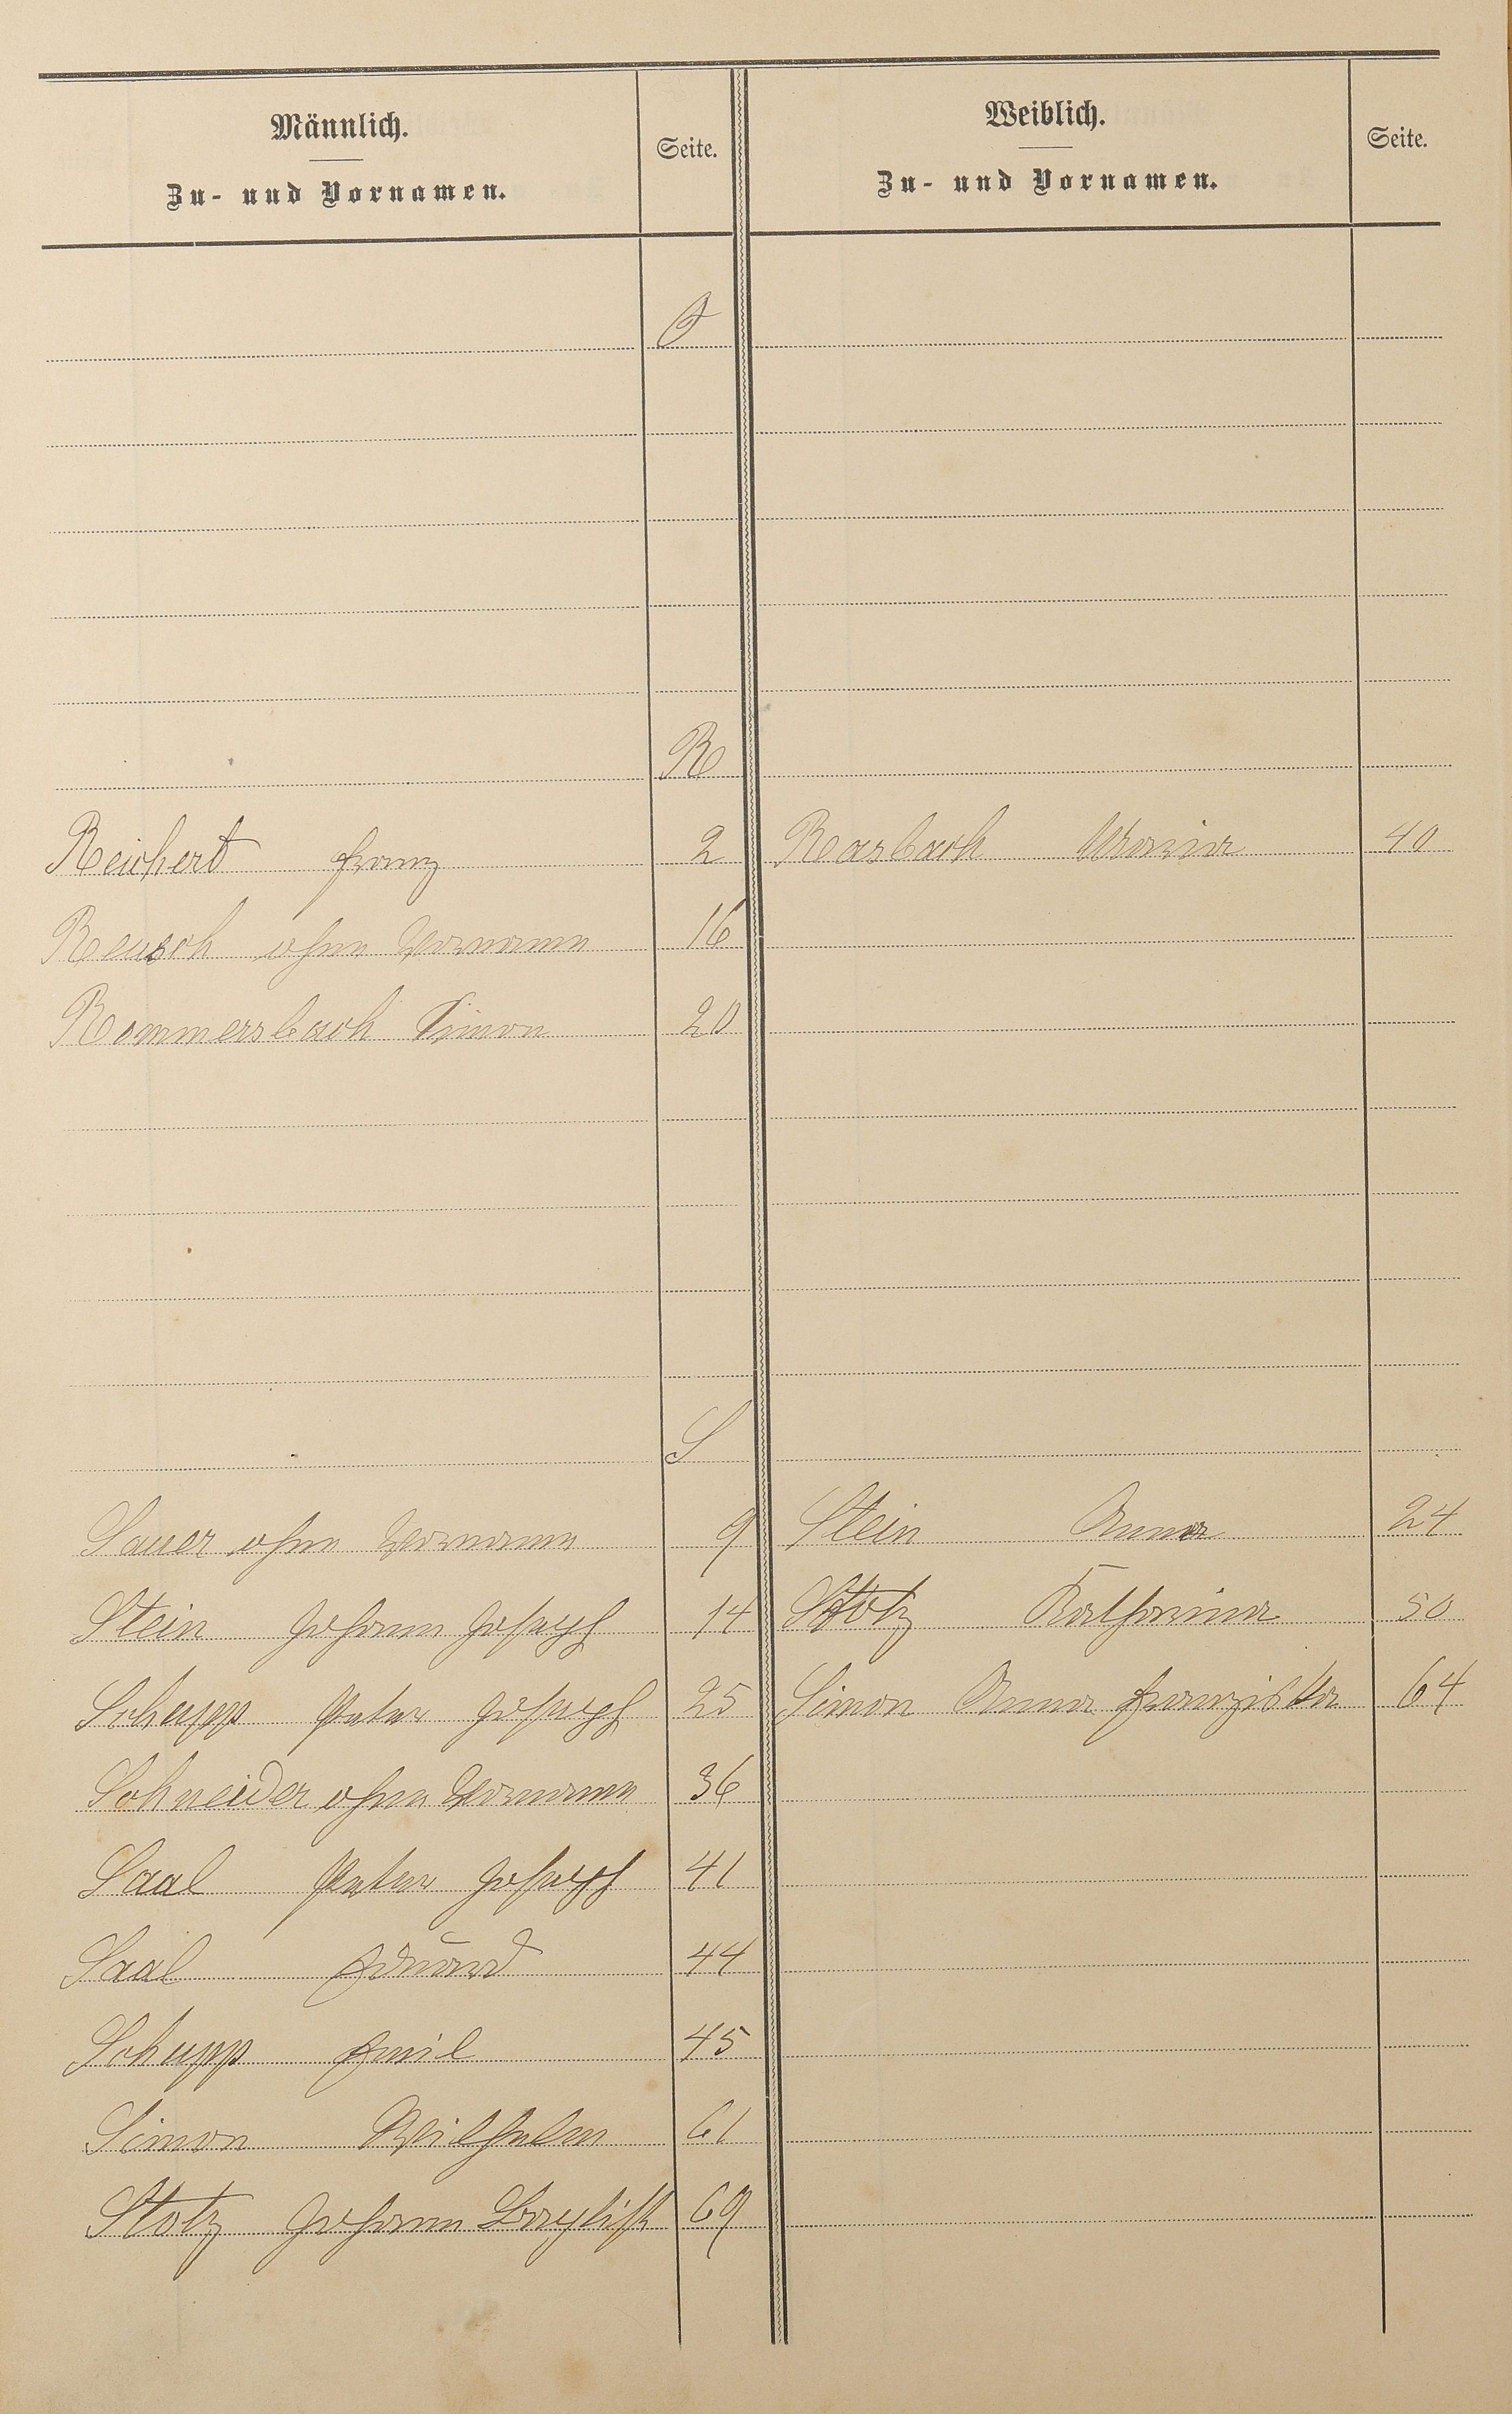 Männlich.
Zu- und Vornamen.
Seite.
Weiblich.
Zu- und Vornamen.
Seite.
R
Reichert Franz 2 Rasbach Maria 40
Reusch ohne Vornamen 16
Rommersbach Simon 20
S
Sauer ohne Vornamen 9 Stein Anna 24
Stein Johann Joseph 14 Stotz Katharina 50
Schupp Peter Joseph 25 Simon Anna Franziska 64
Schneider ohne Vornamen 36
Saal Peter Joseph 41
Saal Eduard 44
Schupp Emil 45
Simon Wilhelm 61
Stotz Johann Baptist 69